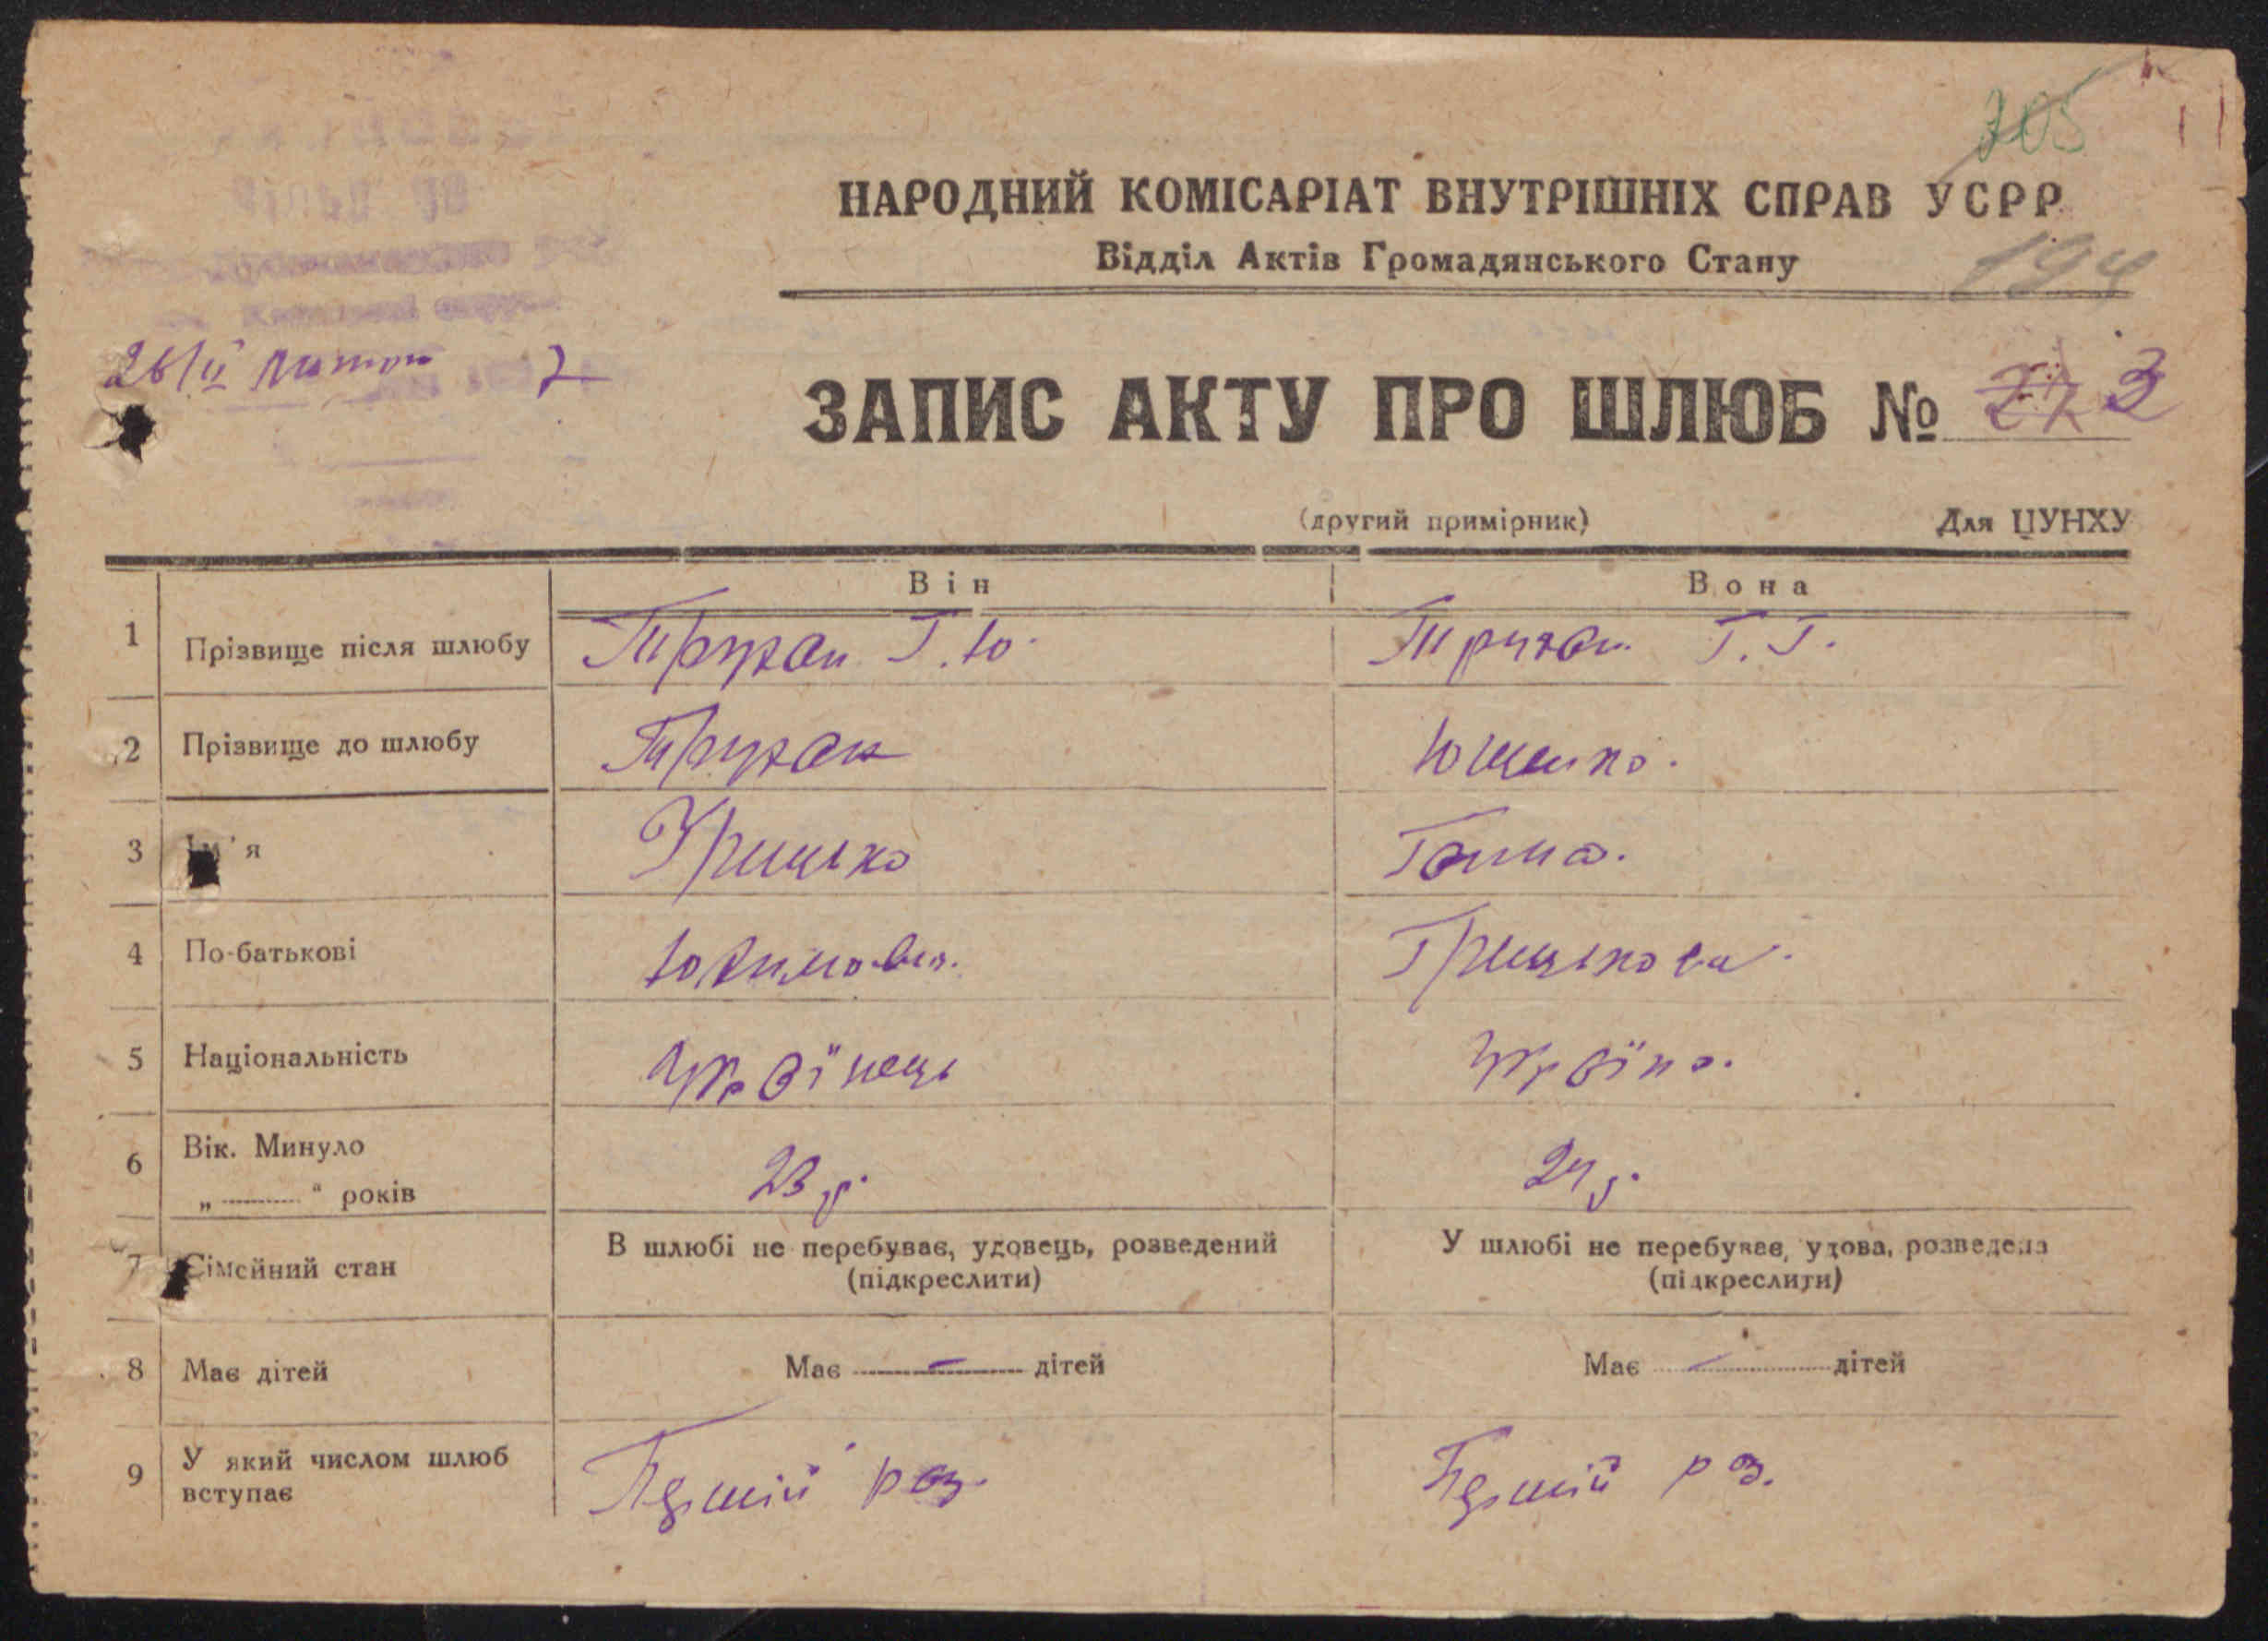 705
НАРОДНИЙ КОМІСАРІАТ ВНУТРІШНІХ СПРАВ УСРР
Відділ Актів Громадянського Стану
194
26/II 7
ЗАПИС АКТУ ПРО ШЛЮБ № 3
(другий примірник) Для ЦУНХУ
Він Вона
1 Прізвище після шлюбу Тружан Г. Ю. Тружан Г. Г.
2 Прізвище до шлюбу Тружан Ющенко.
3 Ім'я Грицько Ганна.
4 По-батькові Юхимович. Грицькова.
5 Національність Українець Україна.
6 Вік. Минуло
„ “ років 23 р. 24 р.
7 Сімейний стан В шлюбі не перебуває, удовець, розведений У шлюбі не перебуває, удова, розведена
(підкреслити) (підкреслити)
8 Має дітей Має — дітей Має — дітей
9 У який числом шлюб
вступає Первий раз. Первий раз.